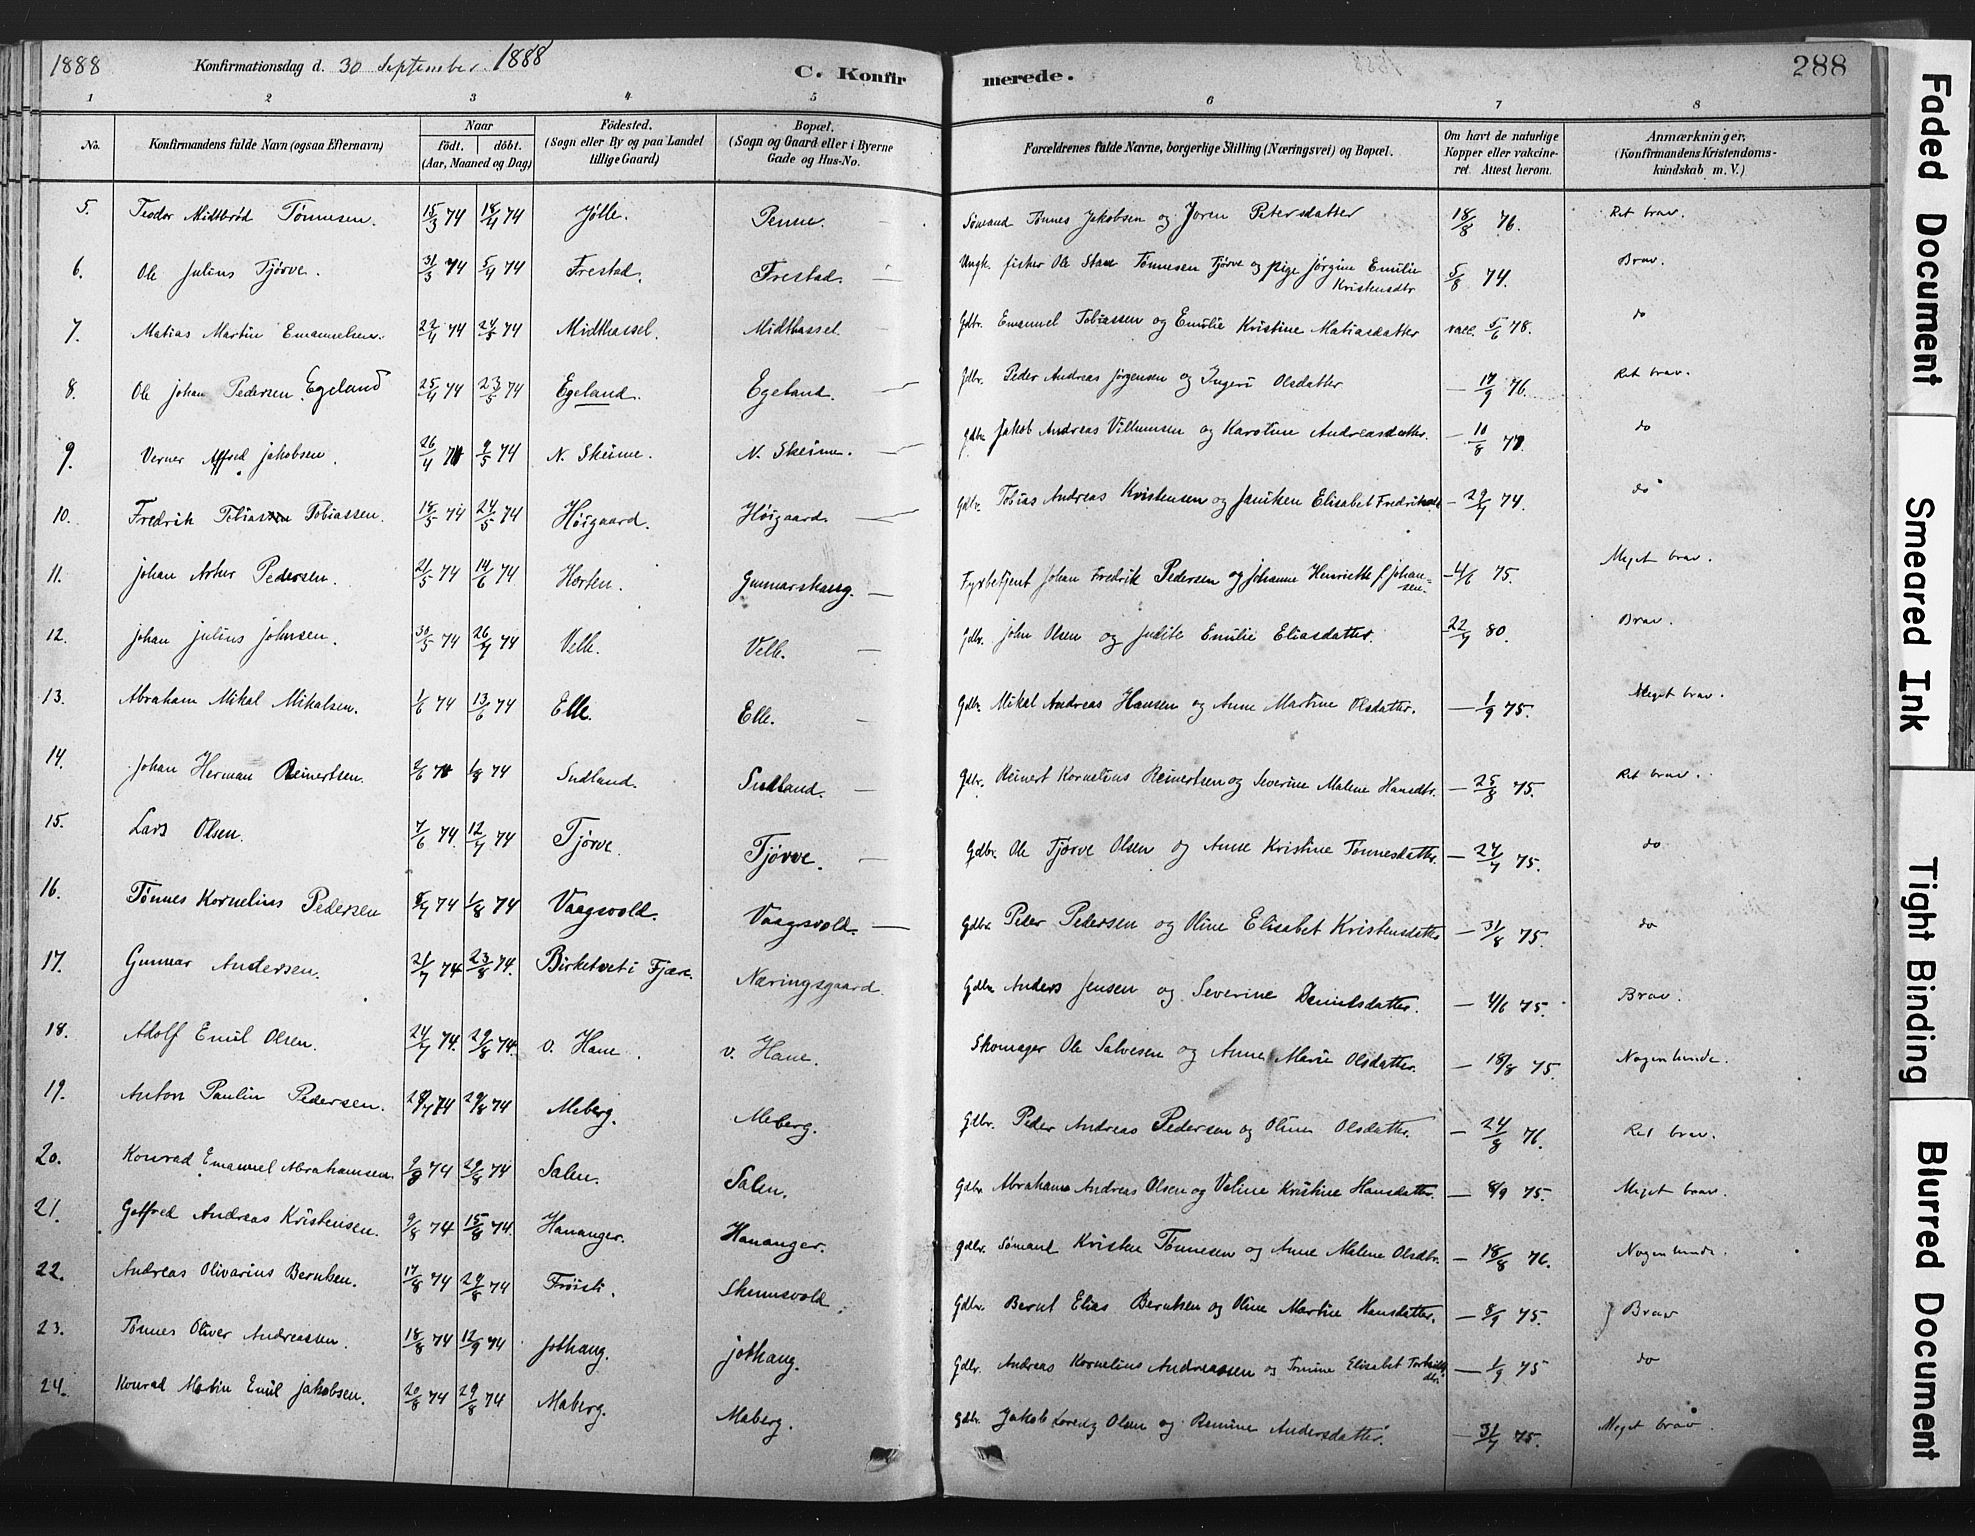 1888 Konfirmationsdag d. 30 September 1888 C. Konfir merede. 288
1 2 3 4 5 6 7 8
No. Konfirmandens fulde Navn (ogsaa Efternavn) Naar födt. döbt. (Aar, Maaned og Dag) Födested. (Sogn eller By og paa Landet tillige Gaard) Bopæl. (Sogn og Gaard eller i Byerne Gade og Hus-No. Forældrenes fulde Navne, borgerlige Stilling (Næringsvei) og Bopæl. Om havt de naturlige Kopper eller vakcineret. Attest herom. Anmærkninger, (Konfirmandens Kristendomskundskab m. V.)
5. Teodor Midtbrød Tønnesen. 15/3 74 18/4 74 Jølle. Penne. Sømand Tønnes Jakobsen og Joren Petersdatter 18/8 76. Ret brav.
6. Ole Julius Tjørve. 31/3 74 5/4 74 Frestad. Frestad. Ungk. fisker Ole Tønnesen Tjørve og pige Jørgine Emilie Kristensdtr 5/8 74. Brav.
7. Matias Martin Emanuelsen. 22/4 74 24/5 74 Midthassel. Midthassel. Gdbr. Emanuel Tobiassen og Emilie Kristine Matiasdatter vacc. 5/6 78. do
8. Ole Johan Pedersen Egeland 25/4 74 23/5 74 Egeland. Egeland. Gdbr. Peder Andreas Jørgensen og Ingeri Olsdatter — 17/9 76. Ret brav.
9. Verner Alfred Jakobsen. 26/4 74 9/5 74 N. Skeime. N. Skeime. Gdbr. Jakob Andreas Villumsen og Karoline Andreasdatter. — 10/8 77. do
10. Fredrik Tobiassen. 18/5 74 24/5 74 Høigaard. Høigaard. Gdbr. Tobias Andreas Kristensen og Janiken Elisabet — 29/7 74. do
11. Johan Artur Pedersen. 21/5 74 14/6 74 Horten. Gunnarshaug. Fyrbetjent Johan Fredrik Pedersen og Johanne Henriette f. Johansen. — 4/6 75. Meget brav.
12. Johan Julius Johnsen. 30/5 74 26/7 74 Velle. Velle. Gdbr. John Olsen og Judite Emilie Eliasdatter. 22/7 80. Brav.
13. Abraham Mikal Mikalsen. 1/6 74 13/6 74 Elle. Elle. Gdbr. Mikal Andreas Hansen og Anne Martine Olsdatter. — 1/9 75. Meget brav.
14. Johan Herman Reinertsen. 2/6 74 1/8 74 Sudland. Sudland. Gdbr. Reinert Kornelius Reinertsen og Severine Malene Hansdtr. — 25/8 75. Ret brav.
15. Lars Olsen. 7/6 74 12/7 74 Tjørve. Tjørve. Gdbr. Ole Tjørve Olsen og Anne Kristine Tønnesdatter. — 24/7 75. do
16. Tønnes Kornelius Pedersen 5/7 74 1/8 74 Vaagsvold. Vaagsvold. Gdbr. Peder Pedersen og Oline Elisabet Kristensdatter — 31/8 75. do
17. Gunnar Andersen. 21/7 74 23/8 74. Birketvet i Fjære. Næringsgaard. Gdbr Anders Jensen og Severine Danielsdatter. — 4/6 75. Brav.
18. Adolf Emil Olsen. 24/7 74. 29/8 74. v. Hane. v. Hane. Skomager Ole Salvesen og Anne Marie Olsdatter. — 18/8 75. Nogenlunde.
19. Anton Paulin Pedersen. 74 29/8 74 Meberg. Meberg. Gdbr. Peder Andreas Pedersen og Oline Olsdatter. — 24/8 76. Ret brav.
20. Konrad Emanuel Abrahamsen. 74 29/8 74 Salen. Salen. Gdbr. Abraham Andreas Olsen og Kristine Hansdatter. — 8/9 75. Meget brav.
21. Gotfred Andreas Kristensen. 9/8 74 15/8 74. Hananger. Hananger. Gdbr. Sømand Kristen Tønnesen og Anne Malene Olsdtr. — 18/8 76. Nogenlunde.
22. Andreas Olivarius Berntsen. 17/8 74 29/8 74 Frøisti. Skeimsvold. Gdbr. Bernt Elias Berntsen og Oline Martine Hansdatter. — 8/9 75. Brav
23. Tønnes Oliver Andreassen. 18/8 74 12/9 74 Jøthaug. Jøthaug. Gdbr. Andreas Kornelius Andreassen og Tomine Elisabet — 1/9 75 do
24. Konrad Martin Emil Jakobsen. 20/8 74 29/8 74 Maberg. Maberg. Gdbr. Jakob Olsen og Andersdatter. — 31/7 75. Meget brav
Faded Document
Smeared Ink
Tight Binding
Blurred Document